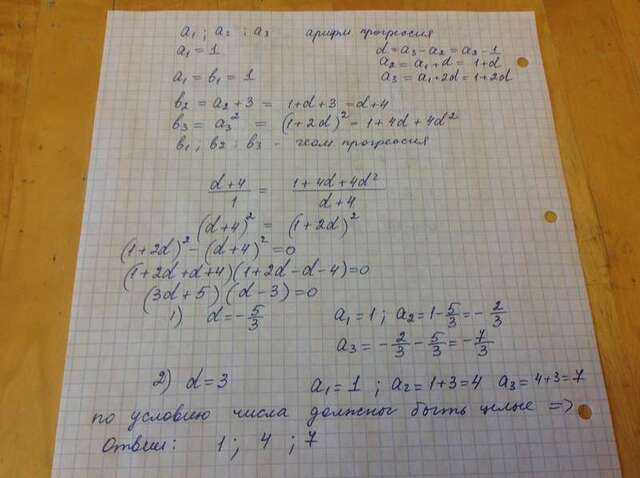 a₁ ; a₂ ; a₃ арифм прогрессия
a₁ = 1 d = a₃ - a₂ = a₂ - 1
a₂ = a₁ + d = 1 + d
a₁ = b₁ = 1 a₃ = a₁ + 2d = 1 + 2d
b₂ = a₂ + 3 = 1 + d + 3 = d + 4
b₃ = a₃² = (1 + 2d)² - 1 + 4d + 4d²
b₁ ; b₂ ; b₃ - геом прогрессия
(d + 4)/1 = (1 + 4d + 4d²)/(d + 4)
(d + 4)² = (1 + 2d)²
(1 + 2d)² - (d + 4)² = 0
(1 + 2d + d + 4)(1 + 2d - d - 4) = 0
(3d + 5)(d - 3) = 0
1) d = - 5/3 a₁ = 1 ; a₂ = 1 - 5/3 = - 2/3
a₃ = - 2/3 - 5/3 = - 7/3
2) d = 3 a₁ = 1 ; a₂ = 1 + 3 = 4 a₃ = 4 + 3 = 7
по условию числа должны быть целые =>
Ответ: 1 ; 4 ; 7